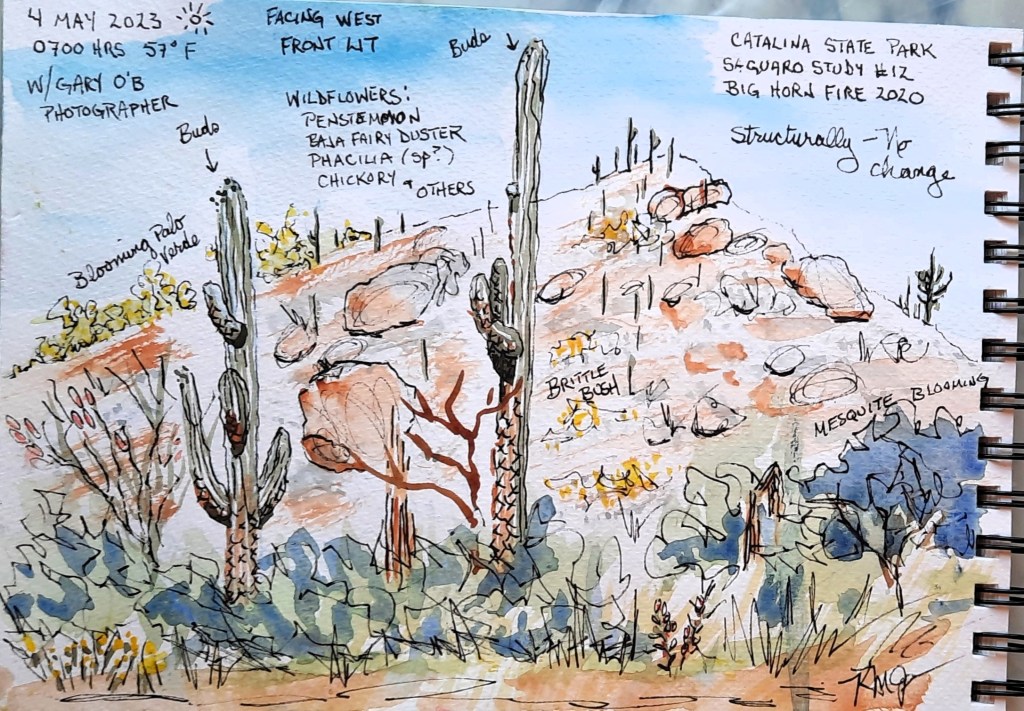 4 MAY 2023
0700 HRS 57° F
W/GARY O'B
PHOTOGRAPHER
FACING WEST
FRONT LIT
Buds
Buds
WILDFLOWERS:
PENSTEMON
BAJA FAIRY DUSTER
PHACILIA (SP?)
CHICKORY & OTHERS
CATALINA STATE PARK
SAGUARO STUDY #12
BIG HORN FIRE 2020
Structurally - No
change
Blooming Palo
Verde
BRITTLE
BUSH
MESQUITE BLOOMING
RMG